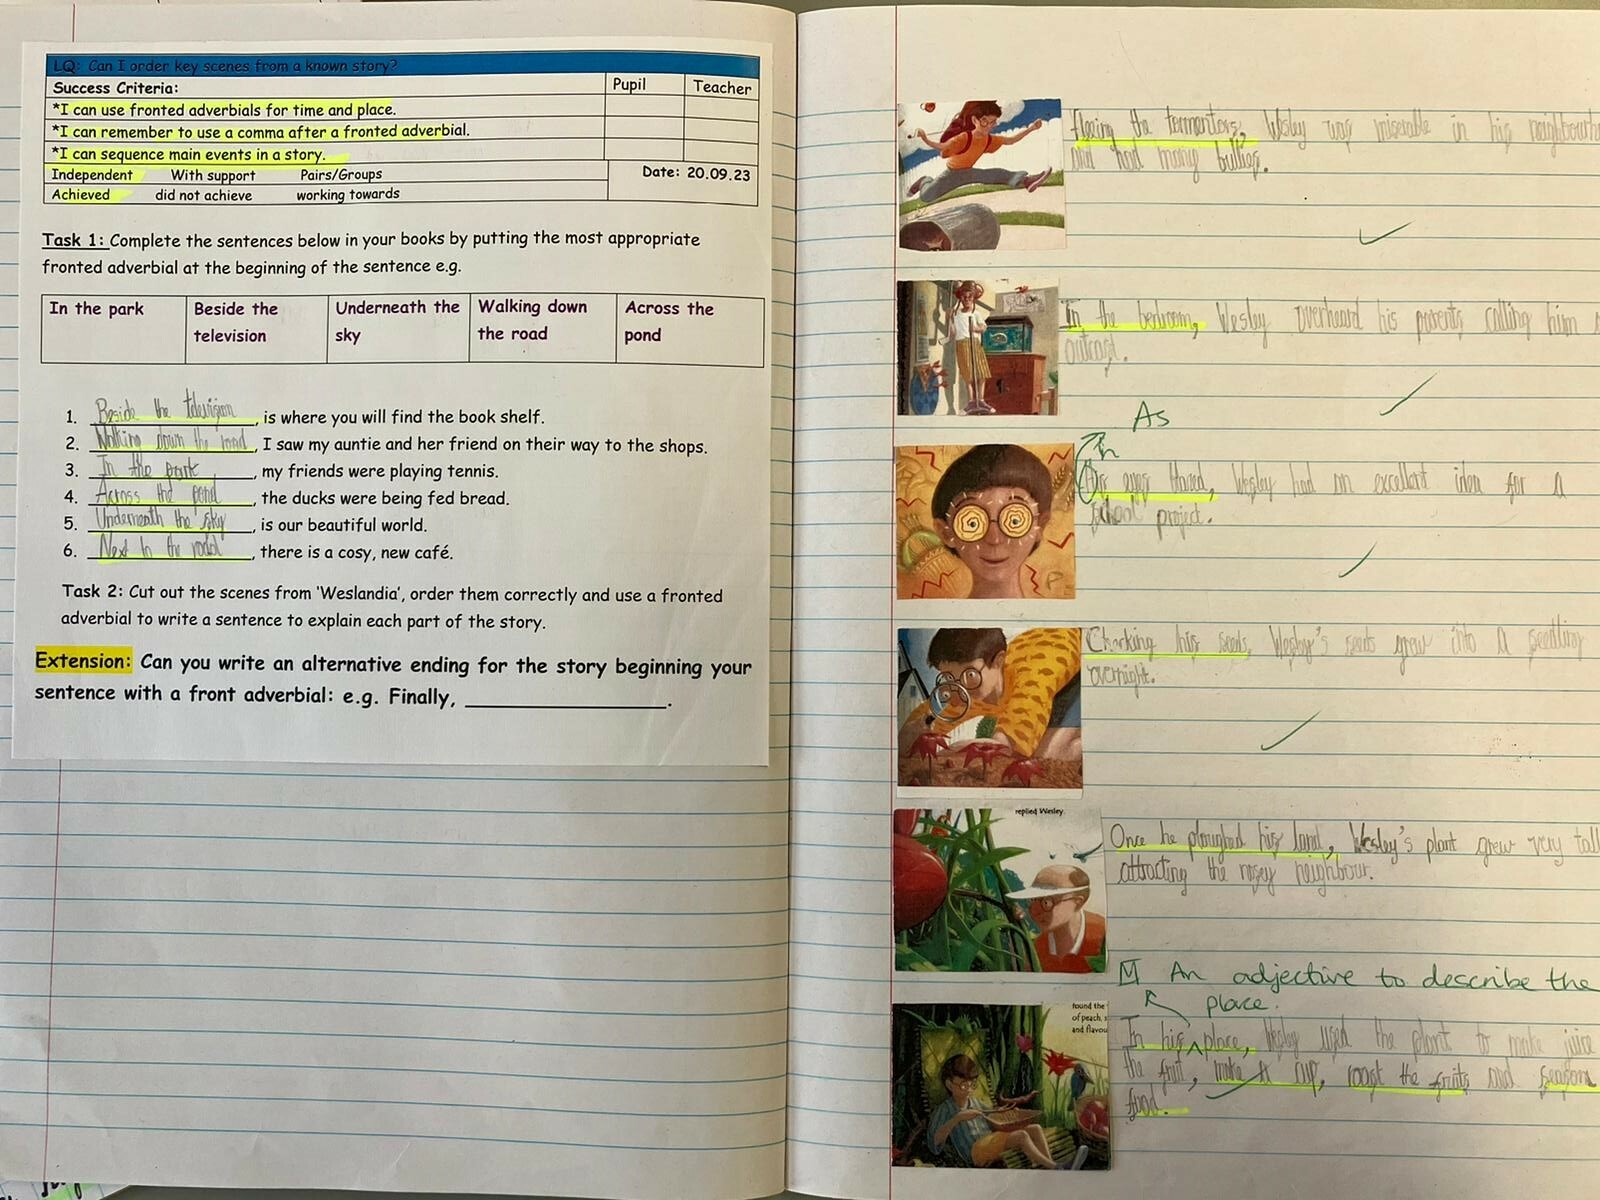 LQ: Can I order key scenes from a known story?
Success Criteria:
Pupil
Teacher
*I can use fronted adverbials for time and place.
*I can remember to use a comma after a fronted adverbial.
*I can sequence main events in a story.
Independent With support Pairs/Groups
Date: 20.09.23
Achieved did not achieve working towards
Task 1: Complete the sentences below in your books by putting the most appropriate
fronted adverbial at the beginning of the sentence e.g.
In the park
Beside the
television
Underneath the
sky
Walking down
the road
Across the
pond
1. Beside the television, is where you will find the book shelf.
2. Walking down the road, I saw my auntie and her friend on their way to the shops.
3. In the park, my friends were playing tennis.
4. Across the pond, the ducks were being fed bread.
5. Underneath the sky, is our beautiful world.
6. Next to the road, there is a cosy, new café.
Task 2: Cut out the scenes from 'Weslandia', order them correctly and use a fronted
adverbial to write a sentence to explain each part of the story.
Extension: Can you write an alternative ending for the story beginning your
sentence with a front adverbial: e.g. Finally, ____________.
fleeing the tormentors, Wesley was miserable in his
and had many bullies.
In the bedroom, Wesley overheard his parents calling him
outcast.
As
eyes Wesley had an excellent idea for a
school project.
Checking his seeds, Wesley's seeds grew into a seedling
overnight.
replied Wesley.
Once he ploughed his land, Wesley's plant grew very tall
attracting the nosey neighbour.
An adjective to describe the
place.
found the
of peach, s
and flavou
In his ^ place, Wesley used the plant to make juice
the fruit, make a cup, roast the fruits and